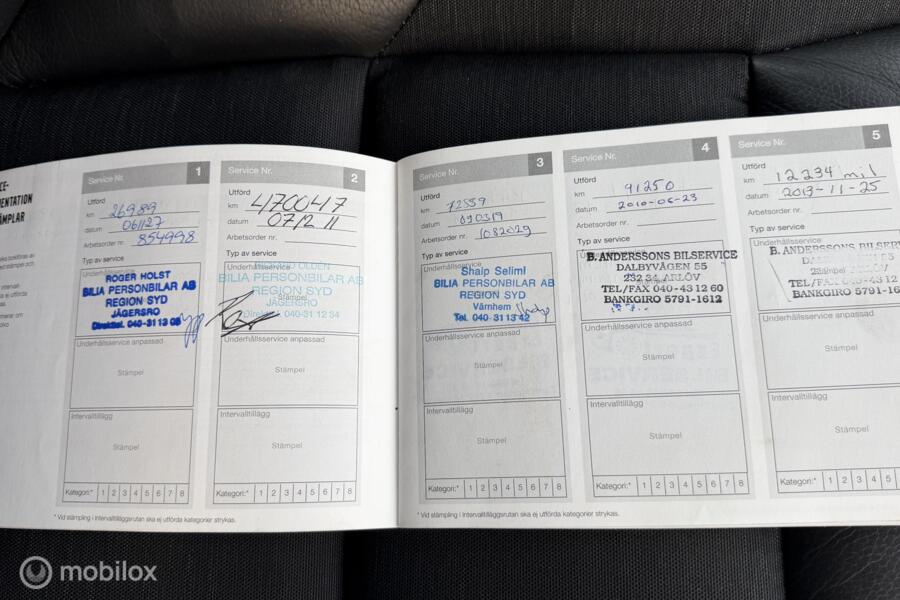 CE-
MENTATION
TÄMPLAR
Service Nr. 1
Utförd
km 26989
datum 061127
Arbetsorder nr. 854998
Typ av service
Underhållsservice
ROGER HOLST
BILIA PERSONBILAR AB
REGION SYD
JÄGERSRO
Direkttel. 040-31 13 08
Underhållsservice anpassad
Stämpel
Intervalltillägg
Stämpel
Kategori:* 1 2 3 4 5 6 7 8
Service Nr. 2
Utförd
km 470047
datum 071211
Arbetsorder nr.
Typ av service
Underhållsservice
OLDEN
BILIA PERSONBILAR AB
REGION SYD
Stämpel
JÄGERSRO
Direkttel. 040-31 12 34
Underhållsservice anpassad
Stämpel
Intervalltillägg
Stämpel
Kategori:* 1 2 3 4 5 6 7 8
* Vid stämpling i Intervalltilläggsrutan ska ej utförda kategorier strykas.
Service Nr. 3
Utförd
km 72559
datum 090319
Arbetsorder nr. 1082029
Typ av service
Underhållsservice
Shaip Selimi
BILIA PERSONBILAR AB
REGION SYD
Värnhem
Tel. 040-31 13 42
Underhållsservice anpassad
Stämpel
Intervalltillägg
Stämpel
Kategori:* 1 2 3 4 5 6 7 8
Service Nr. 4
Utförd
km 91250
datum 2010-06-23
Arbetsorder nr.
Typ av service
B. ANDERSSONS BILSERVICE
DALBYVÄGEN 55
232 34 ARLÖV
TEL/FAX 040-43 12 60
BANKGIRO 5791-1612
Underhållsservice anpassad
Stämpel
Intervalltillägg
Stämpel
Kategori:* 1 2 3 4 5 6 7 8
Service Nr. 5
Utförd
km 12234 mil
datum 2013-11-25
Arbetsorder nr.
Typ av service
B. ANDERSSONS BILSERV
DALBYVÄGEN 55
232 34 ARLÖV
TEL/FAX 040-43 12
BANKGIRO 5791-16
Underhållsservice anpassad
Stämpel
Intervalltillägg
Stämpel
Kategori:* 1 2 3 4 5 6 7
* Vid stämpling i Intervalltilläggsrutan ska ej utförda kategorier strykas.
mobilox